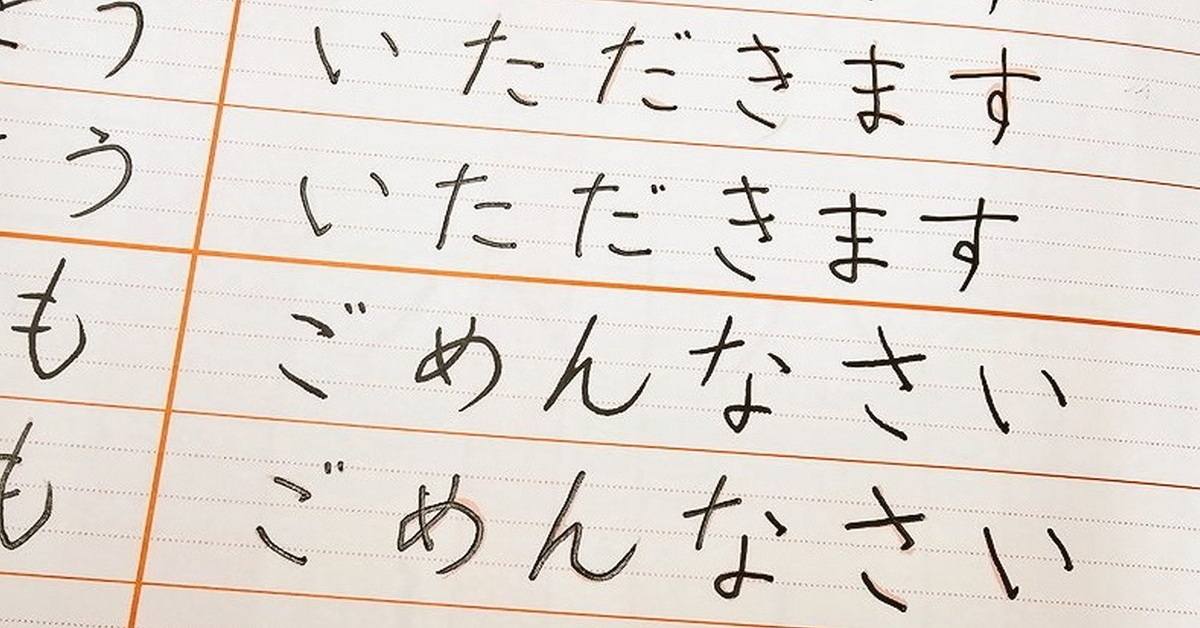 う いただきます
う いただきます
も ごめんなさい
も ごめんなさい